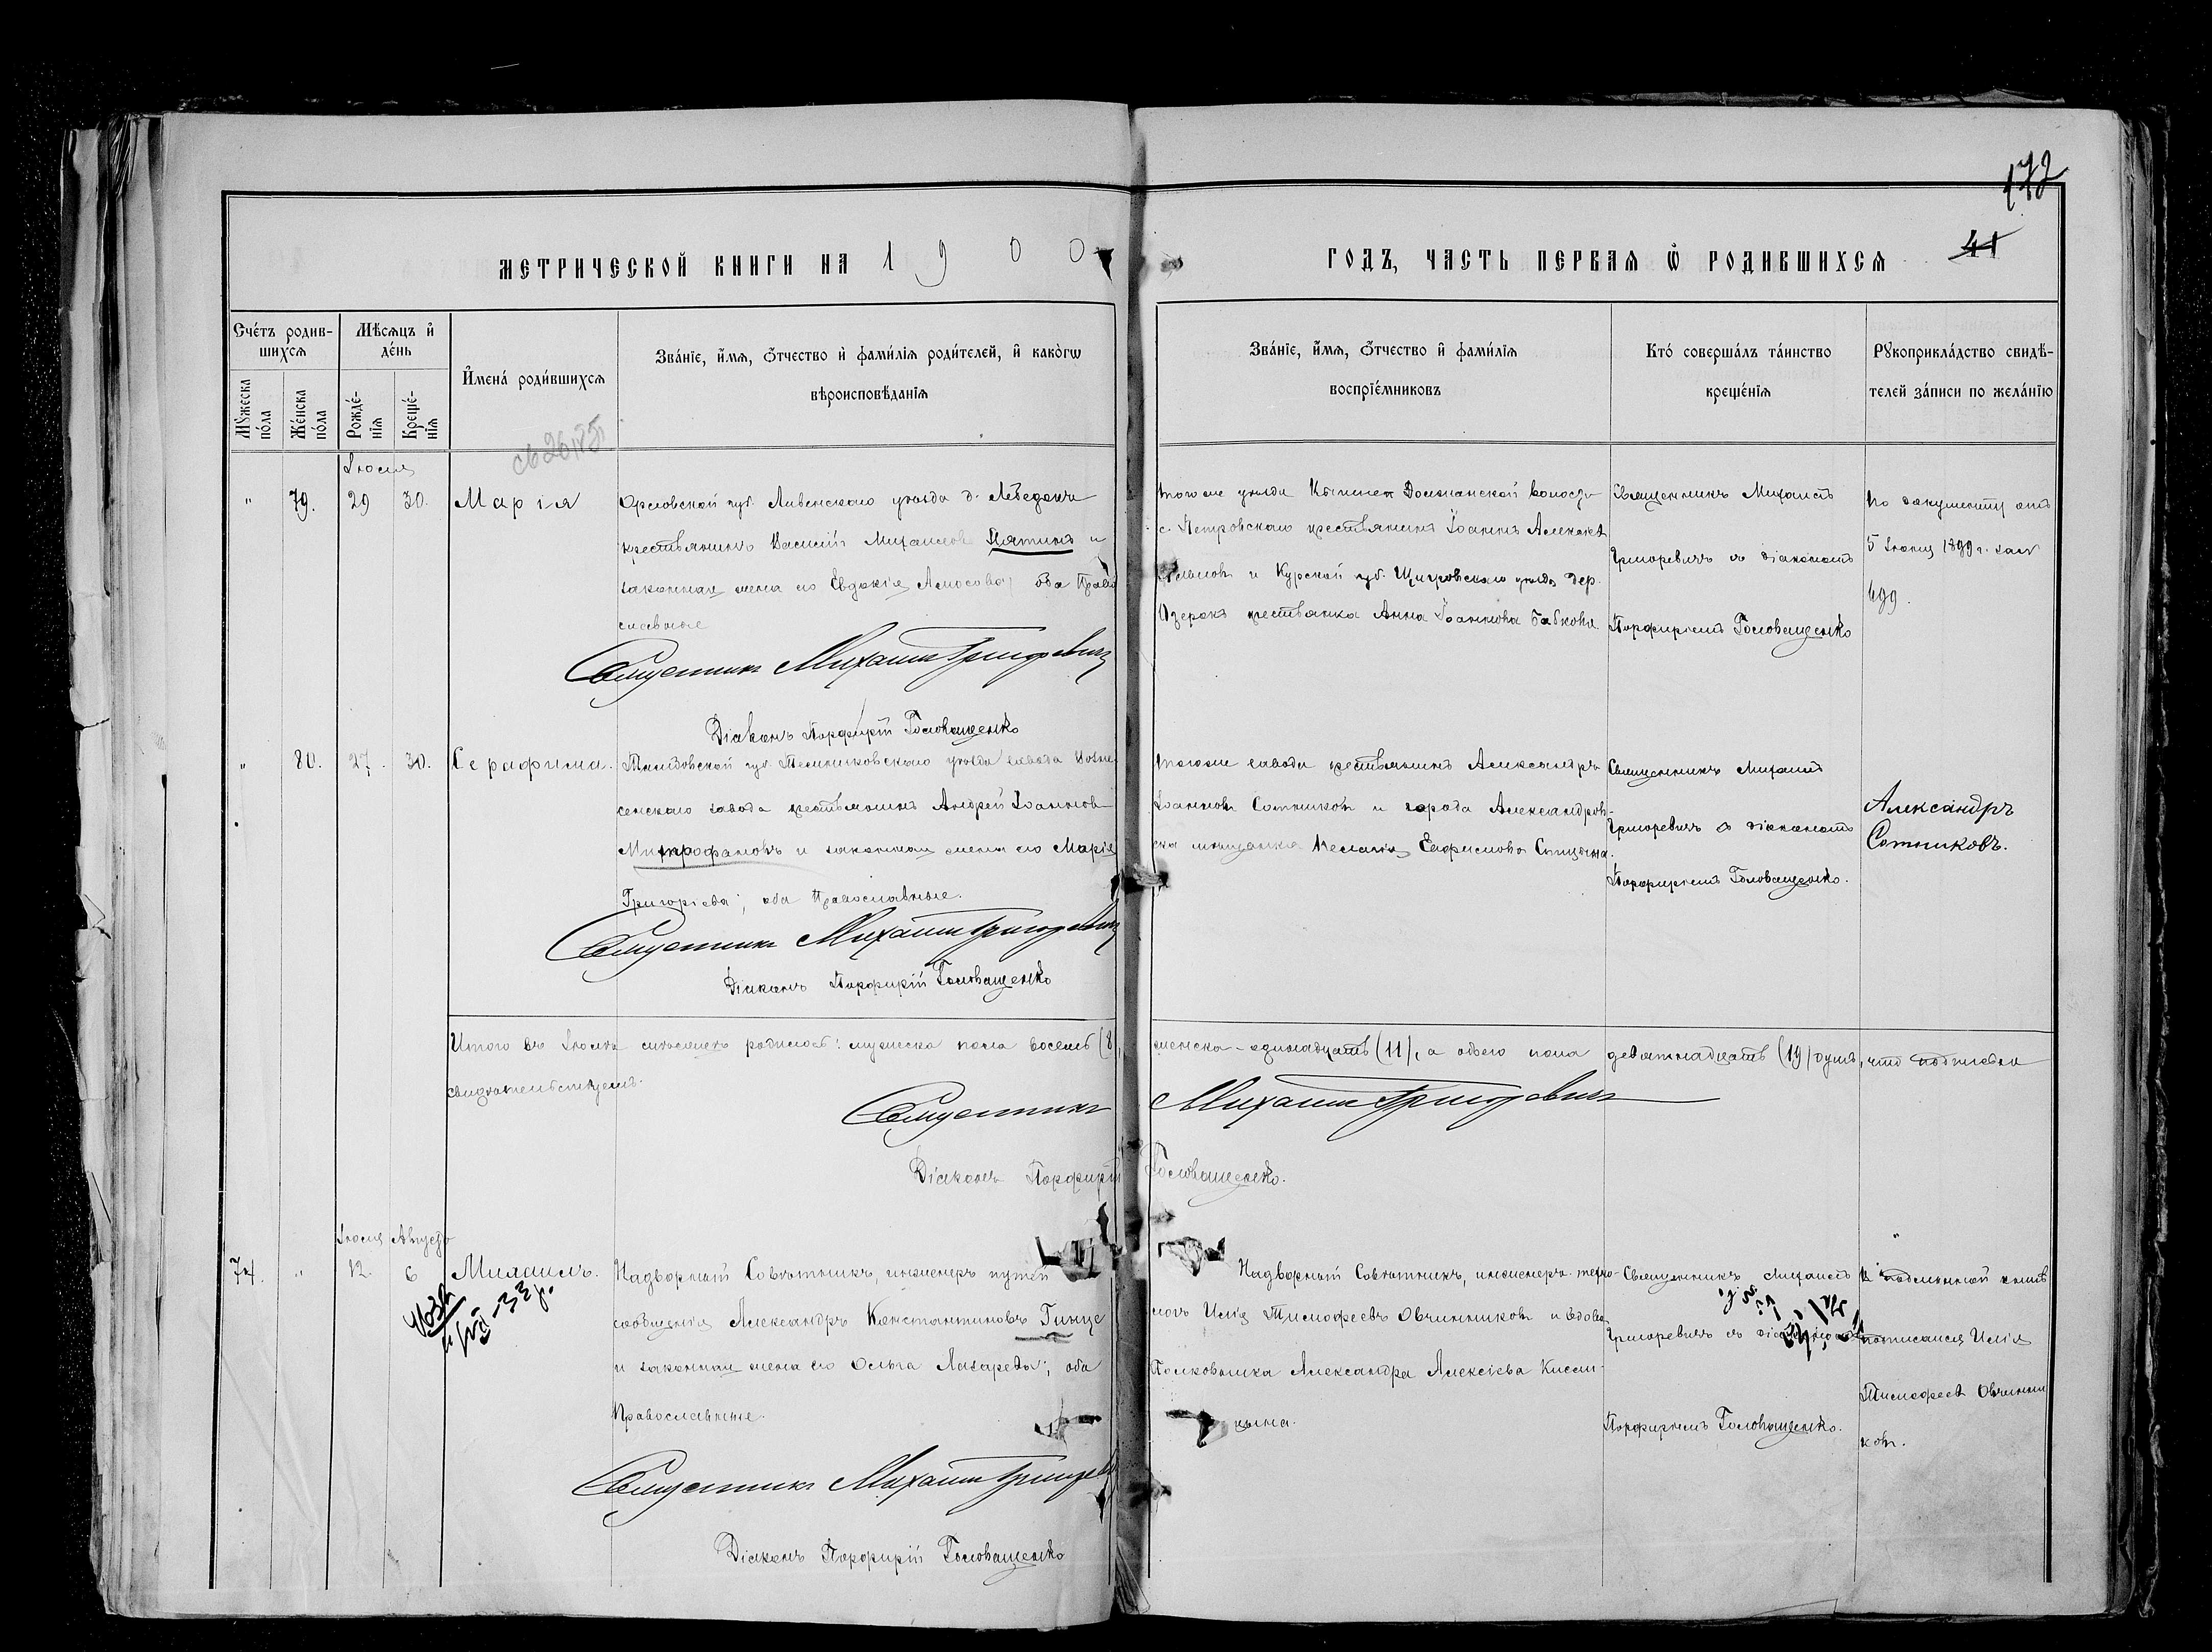 172
МЕТРИЧЕСКОЙ КНИГИ НА 1900
ГОДЪ, ЧАСТЬ ПЕРВАЯ Ѿ РОДИВШИХСЯ
41
Счетъ родив-
шихся
Мѣсяцъ и
день
Мужеска
пола
Женска
пола
Рожде-
нія
Креще-
нія
Имена родившихся
Званіе, имя, отчество и фамилія родителей, и какогѡ
вѣроисповѣданія
Званіе, имя, отчество и фамилія
воспріемниковъ
Кто совершалъ таинство
крещенія
Рукоприкладство свидѣ-
телей записи по желанію
св 26/85
" 79. 29 30. Марія
Орловской губ. Ливенскаго уѣзда д. Лебедокъ
крестьянинъ Василій Михаиловъ Пятинъ и
законная жена его Евдокія Амосова; оба Право
славные
Священникъ Михаилъ Григоревичъ
Діаконъ Порфирій Головащенко
тогоже уѣзда волости
с. Петровскаго крестьянинъ Іоаннъ Алексіевъ
и Курской губ. Щигровскаго уѣзда дер.
Озерокъ крестьянка Анна Іоаннова Бабкова
Священникъ Михаилъ
Григоревичъ съ діакономъ
Порфиріемъ Головащенко
По документу отъ
5 1899 г. за №
699.
" 80. 27. 30. Серафима.
Тамбовской губ. Темниковскаго уѣзда завода Возне
сенскаго завода крестьянинъ Андрей Іоанновъ
Митрофановъ и законная жена его Марія
Григоріева; оба Православные.
Священникъ Михаилъ Григоревичъ
Діаконъ Порфирій Головащенко
тогоже завода крестьянинъ Александръ
Іоанновъ Сотниковъ и города Александров-
ска мѣщанка Пелагія Ефимова
Священникъ Михаилъ
Григоревичъ съ діакономъ
Порфиріемъ Головащенко.
Александръ
Сотниковъ.
Итого въ мѣсяцѣ родилось: мужеска пола восемь (8),
женска - одинадцать (11), а обоего пола девятнадцать (19) душъ, что подписомъ
свидѣтельствуемъ.
Священникъ Михаилъ Григоревичъ
Діаконъ Порфирій Головащенко.
Августа
74. " 12. 6 Михаилъ.
Надворный Совѣтникъ, инженеръ путей
сообщенія Александръ Константиновъ Гинце
и законная жена его Ольга Лазарева; оба
Православные.
Священникъ Михаилъ Григоревичъ
Діаконъ Порфирій Головащенко
Надворный Совѣтникъ, инженеръ-техно-
логъ Илія Тимофеевъ Овчинниковъ и вдова
Полковника Александра Алексіева
Священникъ Михаилъ
Григоревичъ съ діакономъ
Порфиріемъ Головащенко.
Въ подлинной книгѣ
подписался Илія
Тимофеевъ Овчинни
ковъ.